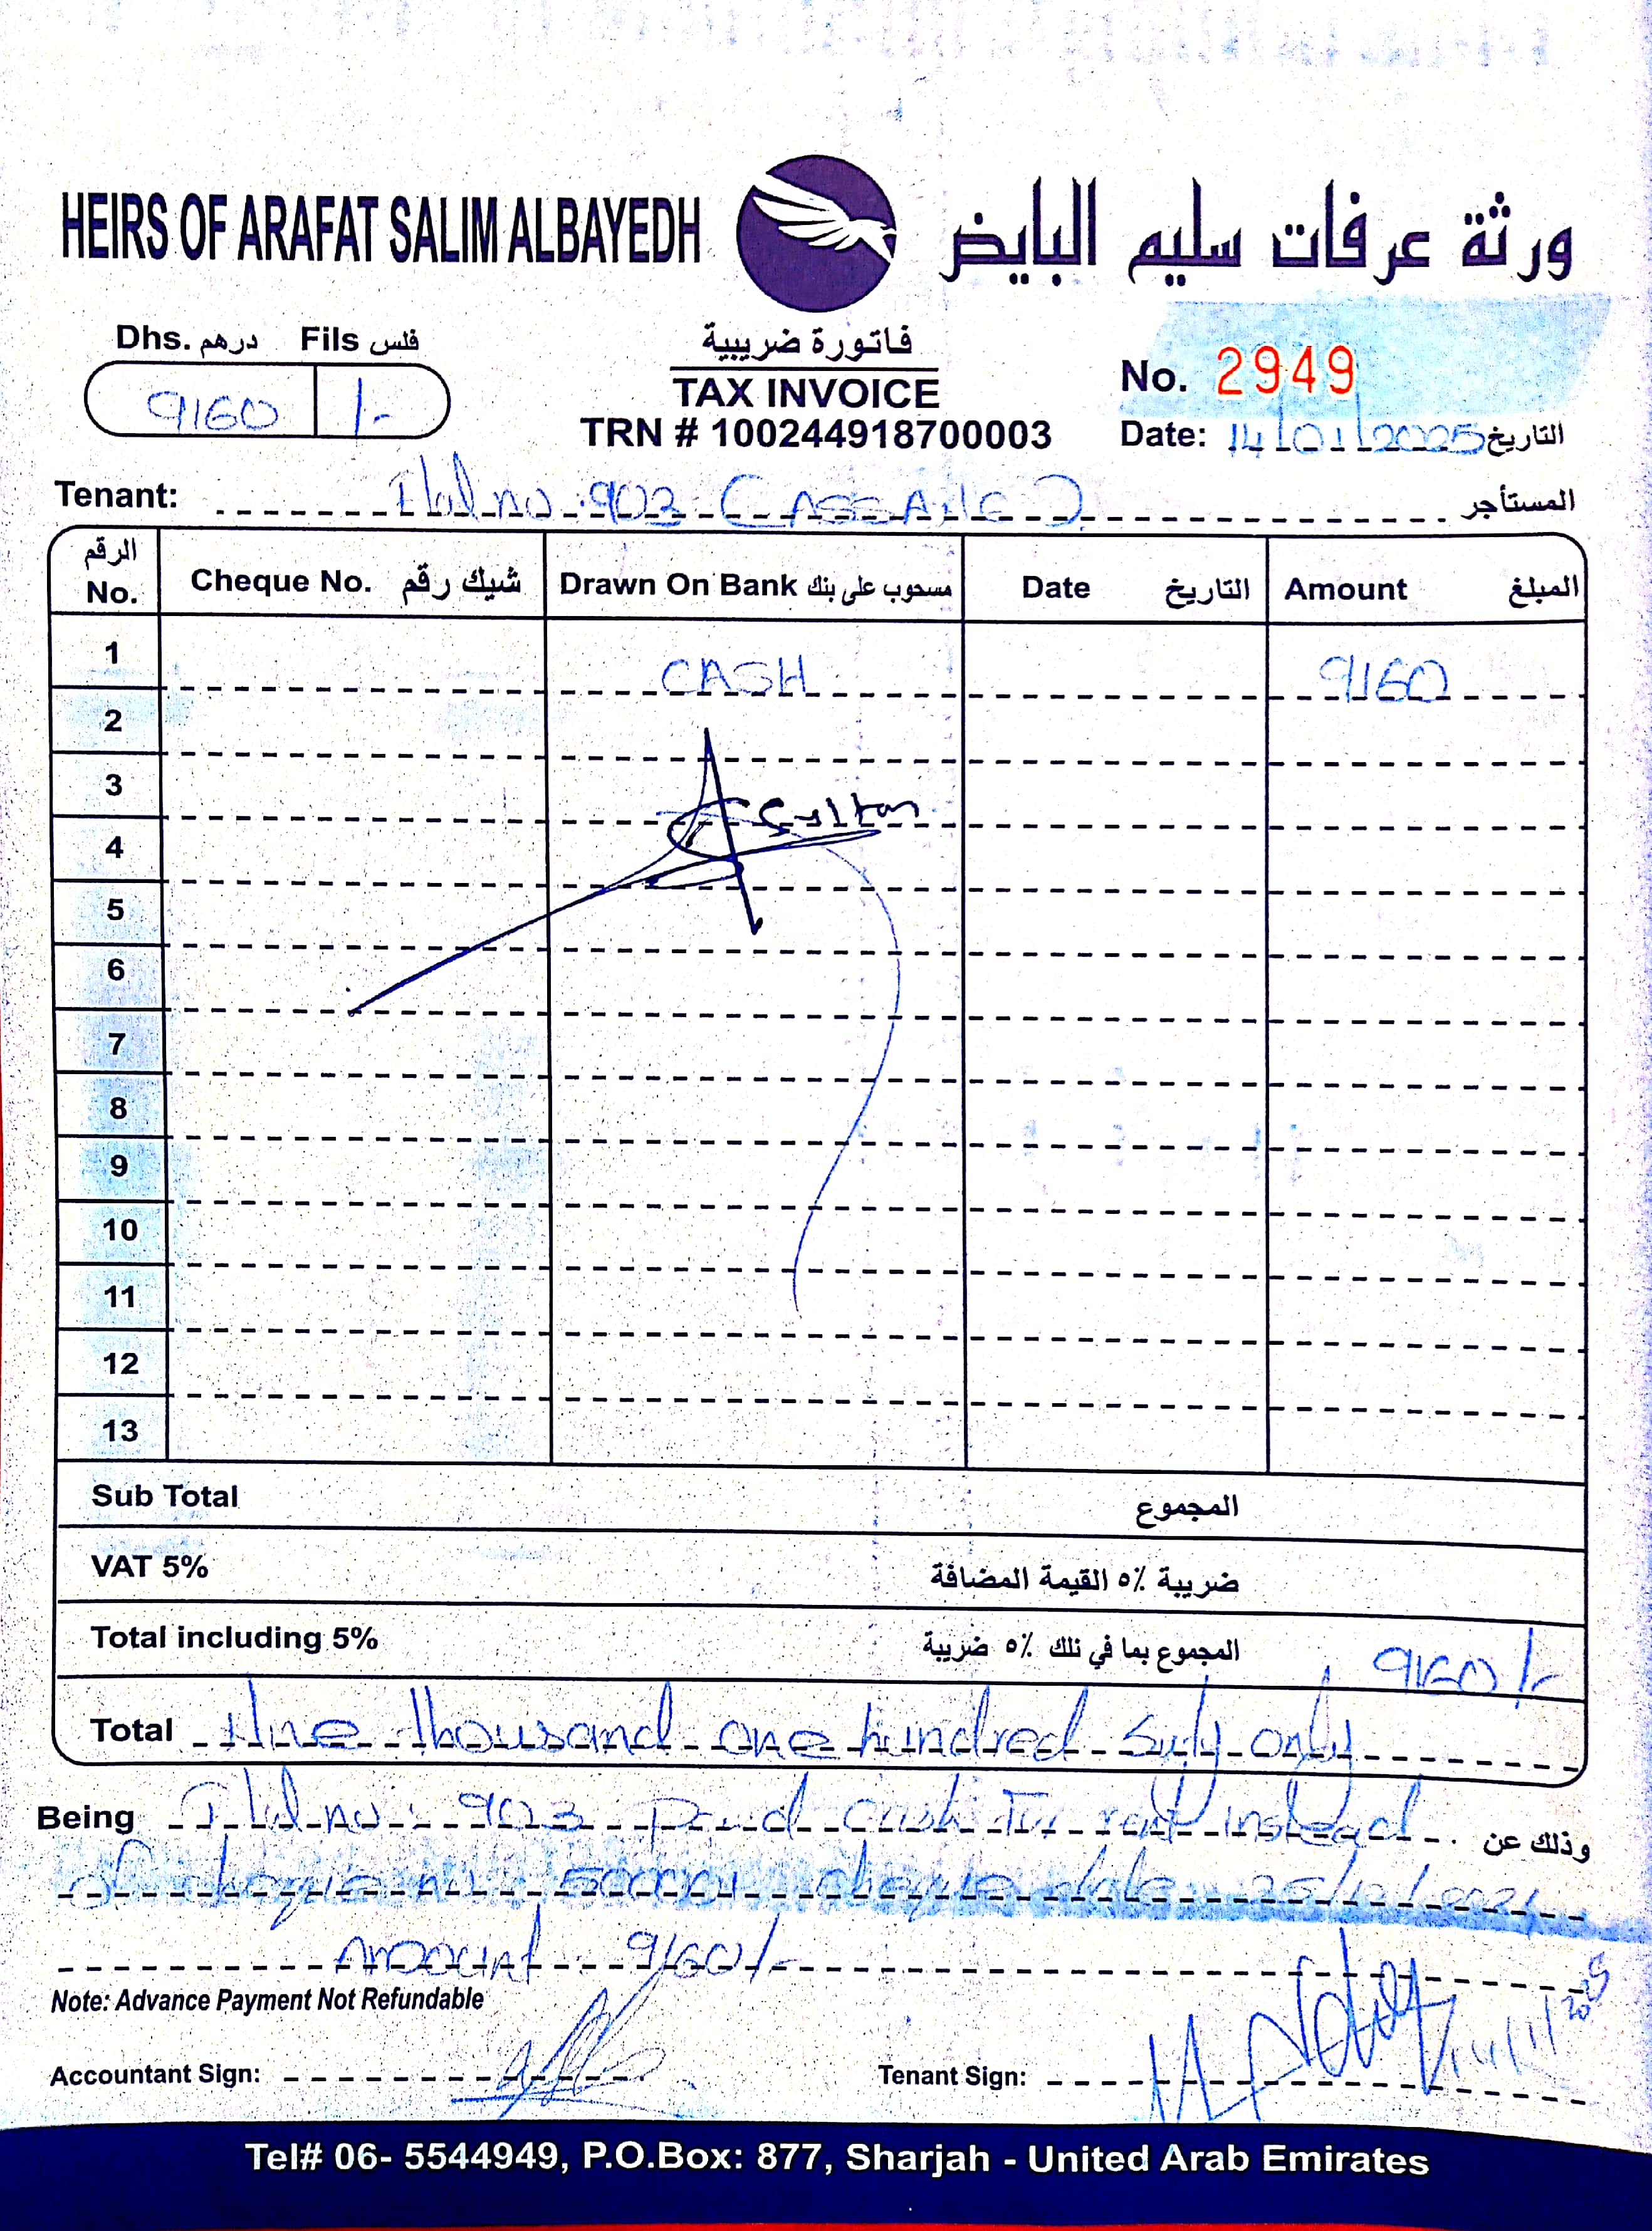 HEIRS OF ARAFAT SALIM ALBAYEDH
ورثة عرفات سليم البايض
Dhs. درهم Fils فلس
9160 /-
فاتورة ضريبية
TAX INVOICE
TRN # 100244918700003
No. 2949
Date: 14/01/2025 التاريخ
Tenant: Flat no. 903 المستأجر
الرقم No. Cheque No. شيك رقم Drawn On Bank مسحوب على بنك Date التاريخ Amount المبلغ
1 CASH 9160
2
3
Sultan
4
5
6
7
8
9
10
11
12
13
Sub Total المجموع
VAT 5% ضريبة ٥٪ القيمة المضافة
Total including 5% المجموع بما في تلك ٥٪ ضريبة 9160/-
Total Nine thousand one hundred sixty only
Being Flat no: 903 Paid cash for rent instead وذلك عن
of cheque no. cheque date
Amount 9160/-
Note: Advance Payment Not Refundable
Accountant Sign: Tenant Sign:
Tel# 06- 5544949, P.O.Box: 877, Sharjah - United Arab Emirates